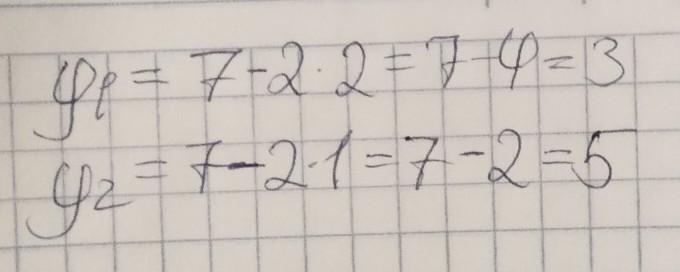 y₁ = 7 - 2 · 2 = 7 - 4 = 3
y₂ = 7 - 2 · 1 = 7 - 2 = 5